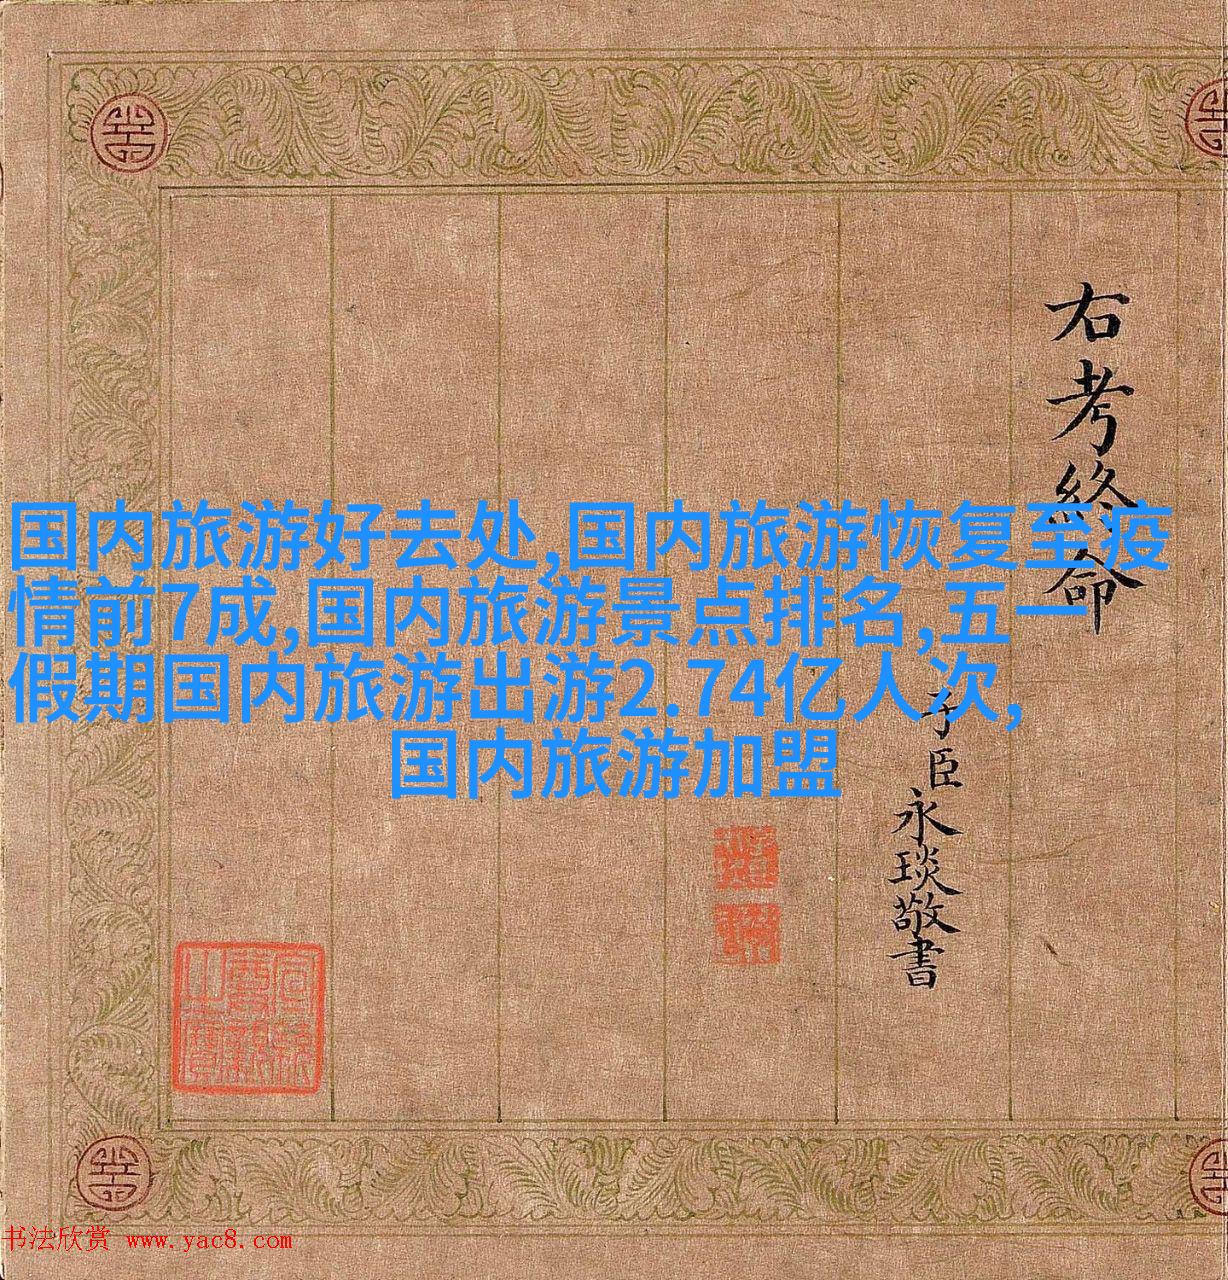 国内旅游好去处,国内旅游恢复至疫
情前7成,国内旅游景点排名,五一
假期国内旅游出游2.74亿人次,
国内旅游加盟
右考終命
子臣永琰敬書
书法欣赏 www.yac8.com